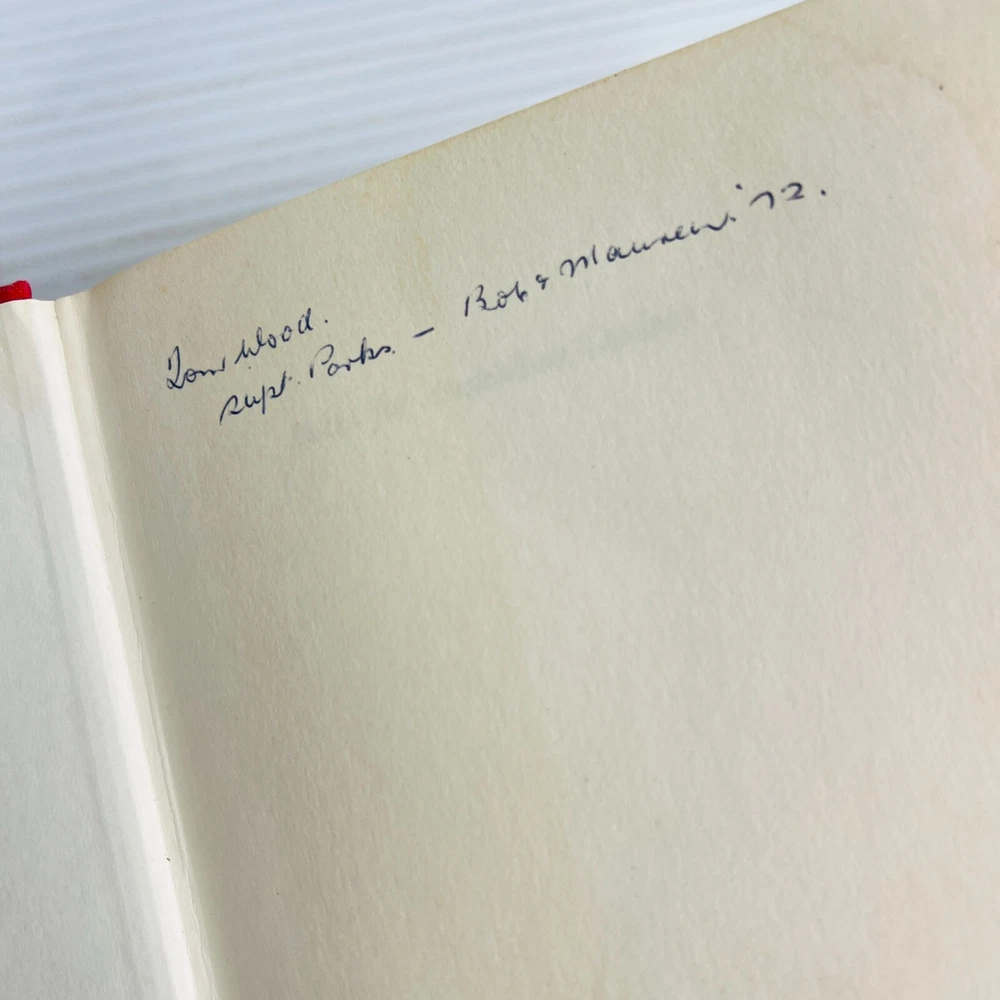 Tom Wood.
supt. Parks. — Bob & Maureen. '72.